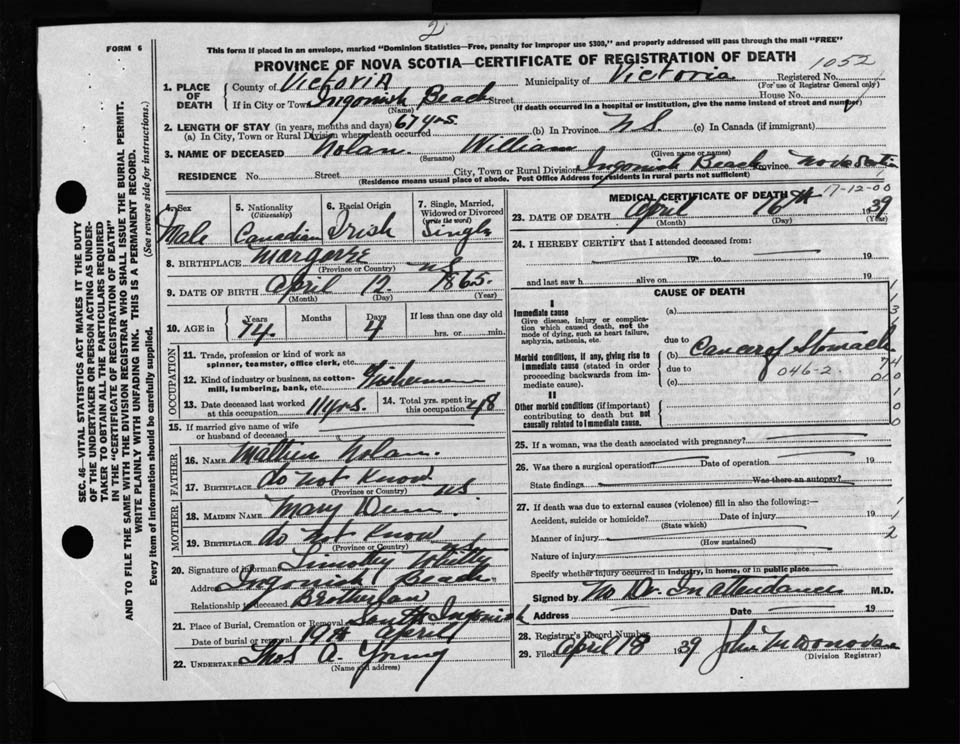 2
FORM 6
This form if placed in an envelope, marked "Dominion Statistics—Free, penalty for improper use $300," and properly addressed will pass through the mail "FREE"
PROVINCE OF NOVA SCOTIA—CERTIFICATE OF REGISTRATION OF DEATH
1052
1. PLACE OF DEATH County of Victoria Municipality of Victoria Registered No.
(For use of Registrar General only)
If in City or Town Ingonish Beach Street House No.
(Name) (If death occurred in a hospital or institution, give the name instead of street and number)
2. LENGTH OF STAY (in years, months and days)
(a) In City, Town or Rural Division where death occurred 67 yrs. (b) In Province N.S. (c) In Canada (if immigrant)
3. NAME OF DECEASED Nolan William
(Surname) (Given name or names)
RESIDENCE No. Street City, Town or Rural Division Ingonish Beach Province Nova Scotia
(Residence means usual place of abode. Post Office Address for residents in rural parts not sufficient)
4. Sex Male
5. Nationality (Citizenship) Canadian
6. Racial Origin Irish
7. Single, Married, Widowed or Divorced (write the word) Single
8. BIRTHPLACE Margaree N.S.
(Province or Country)
9. DATE OF BIRTH April 12 1865
(Month) (Day) (Year)
10. AGE in Years 74 Months Days 4 If less than one day old
hrs. or min.
OCCUPATION
11. Trade, profession or kind of work as spinner, teamster, office clerk, etc.
12. Kind of industry or business, as cotton-mill, lumbering, bank, etc. Fisherman
13. Date deceased last worked at this occupation 11 yrs.
14. Total yrs. spent in this occupation 48
15. If married give name of wife or husband of deceased
FATHER
16. NAME Nolan
17. BIRTHPLACE do not know N.S.
(Province or Country)
MOTHER
18. MAIDEN NAME Mary
19. BIRTHPLACE do not know
(Province or Country)
20. Signature of informant Timothy
Address Ingonish Beach
Relationship to deceased Brotherlaw
21. Place of Burial, Cremation or Removal South Ingonish
Date of burial or removal 19th April
22. UNDERTAKER Thos A. Young
(Name and address)
MEDICAL CERTIFICATE OF DEATH
17-12-00
23. DATE OF DEATH April 16th 1939
(Month) (Day)
24. I HEREBY CERTIFY that I attended deceased from:
19 to 19
and last saw h alive on 19
CAUSE OF DEATH
I
Immediate cause (a)
Give disease, injury or complication which caused death, not the mode of dying, such as heart failure, asphyxia, asthenia, etc.
due to
Morbid conditions, if any, giving rise to immediate cause (stated in order proceeding backwards from immediate cause).
(b) Cancer of Stomach
due to 046-2
(c)
II
Other morbid conditions (if important) contributing to death but not causally related to immediate cause.
25. If a woman, was the death associated with pregnancy?
26. Was there a surgical operation? Date of operation 19
State findings Was there an autopsy?
27. If death was due to external causes (violence) fill in also the following:—
Accident, suicide or homicide? Date of injury 19
(State which)
Manner of injury
(How sustained)
Nature of injury
Specify whether injury occurred in industry, in home, or in public place
Signed by No Dr. In attendance M.D.
Address Date 19
28. Registrar's Record Number
29. Filed April 18 1939
(Division Registrar)
SEC. 46—VITAL STATISTICS ACT MAKES IT THE DUTY
OF THE UNDERTAKER OR PERSON ACTING AS UNDER-
TAKER TO OBTAIN ALL THE PARTICULARS REQUIRED
IN THE "CERTIFICATE OF REGISTRATION OF DEATH"
AND TO FILE THE SAME WITH THE DIVISION REGISTRAR WHO SHALL ISSUE THE BURIAL PERMIT.
WRITE PLAINLY WITH UNFADING INK. THIS IS A PERMANENT RECORD.
Every item of information should be carefully supplied. (See reverse side for instructions.)